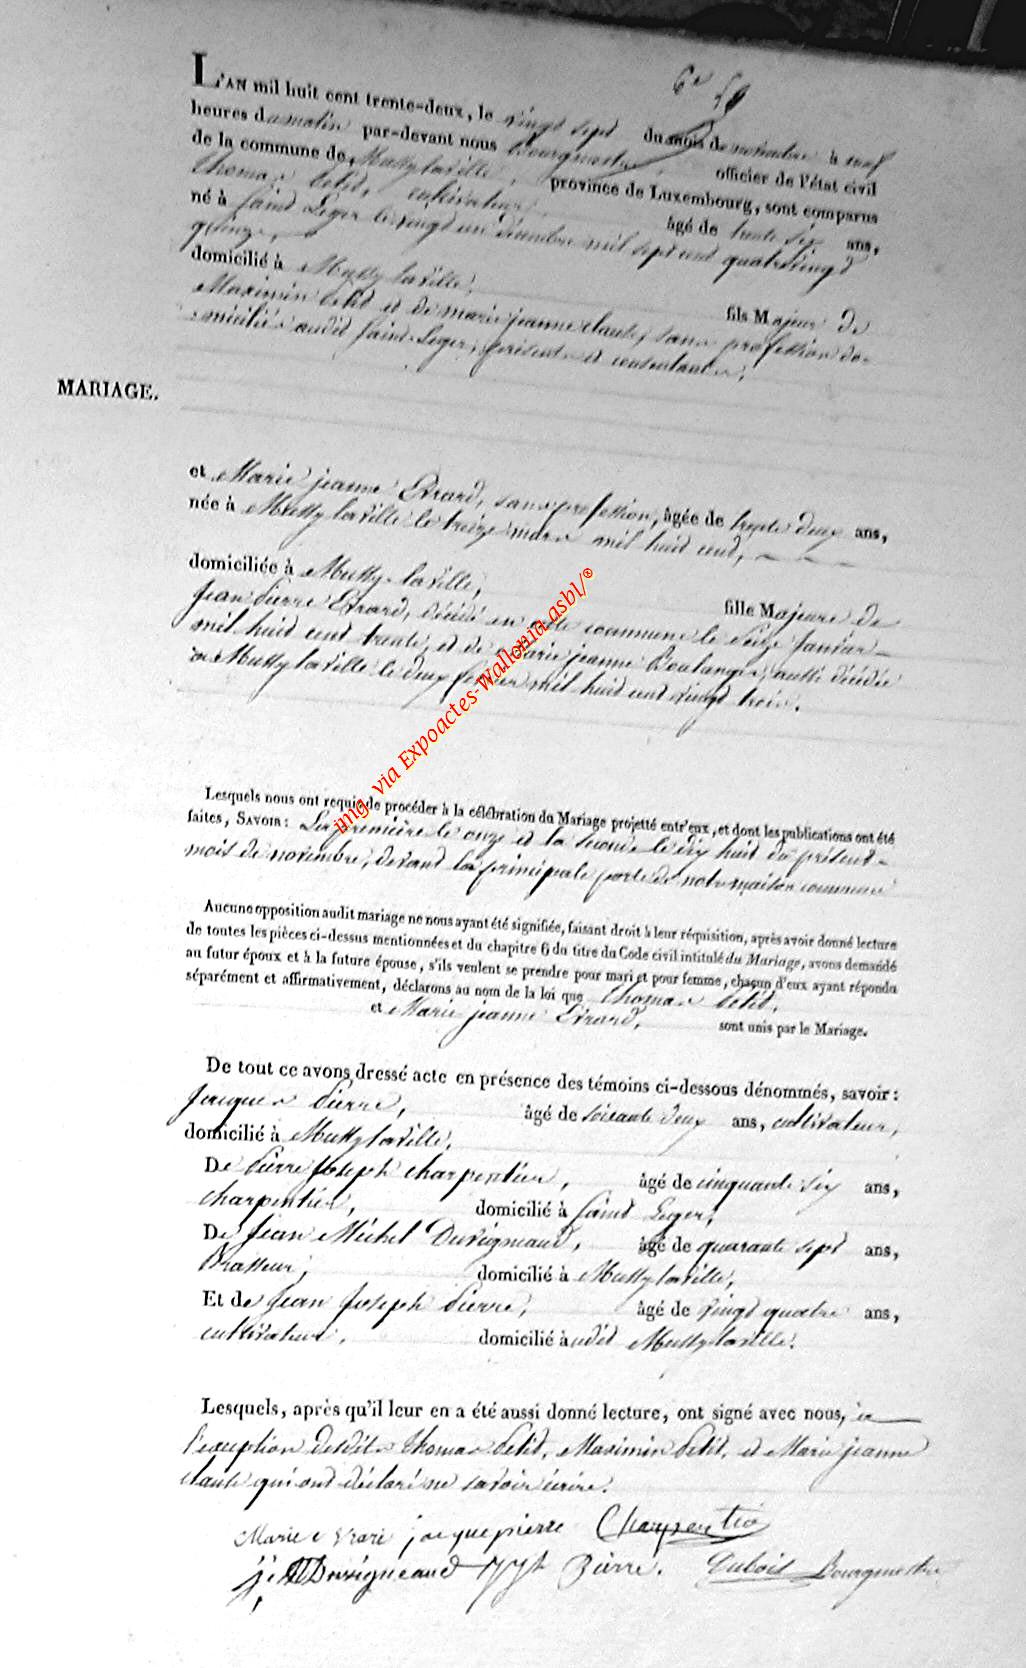 6e
L'AN mil huit cent trente-deux, le vingt sept du mois de novembre à neuf
heures du matin par-devant nous Bourgmestre, officier de l'état civil
de la commune de Mussy laville, province de Luxembourg, sont comparus
Thomas Petit, cultivateur, âgé de trente six ans,
né à Saint Léger le vingt un décembre mil sept cent quatrevingt
quinze,
domicilié à Mussy laville, fils Majeur de
Maximin Petit et de marie jeanne claude, sans profession do-
miciliés audit Saint-Leger, présents et consentants,
MARIAGE.
et Marie jeanne Evrard, sans profession, âgée de trente deux ans,
née à Mussy laville le treize mars mil huit cent,
domiciliée à Mussy-laville, fille Majeure de
Jean Pierre Evrard, décédé en cette commune le Seize Janvier
mil huit cent trente, et de Marie jeanne Boulanger, aussi décédée
à Mussy laville le deux février mil huit cent vingt trois.
Lesquels nous ont requis de procéder à la célébration du Mariage projetté entr'eux, et dont les publications ont été
faites, SAVOIR: La première le onze et la seconde le dix huit du présent
mois de novembre, devant la principale porte de notre maison commune
Aucune opposition audit mariage ne nous ayant été signifiée, faisant droit à leur réquisition, après avoir donné lecture
de toutes les pièces ci-dessus mentionnées et du chapitre 6 du titre du Code civil intitulé du Mariage, avons demandé
au futur époux et à la future épouse, s'ils veulent se prendre pour mari et pour femme, chacun d'eux ayant répondu
séparément et affirmativement, déclarons au nom de la loi que Thomas Petit,
et Marie jeanne Evrard, sont unis par le Mariage.
De tout ce avons dressé acte en présence des témoins ci-dessous dénommés, savoir:
Jacques Pierre, âgé de soixante deux ans, cultivateur,
domicilié à Mussy laville,
De Pierre Joseph charpentier, âgé de cinquante six ans,
charpentier, domicilié à Saint Leger,
De Jean Michel Duvigneaud, âgé de quarante sept ans,
Brasseur, domicilié à Mussy laville,
Et de Jean Joseph Pierre, âgé de vingt quatre ans,
cultivateur, domicilié àudit Mussy laville.
Lesquels, après qu'il leur en a été aussi donné lecture, ont signé avec nous, à
l'exception desdits Thomas Petit, Maximin Petit, et Marie jeanne
claude qui ont déclaré ne savoir écrire.
Marie evrard jacque pierre Charpentié
Duvigneaud Pierre. Dubois Bourgmestre
img. via Expoactes-Wallonia asbl/®